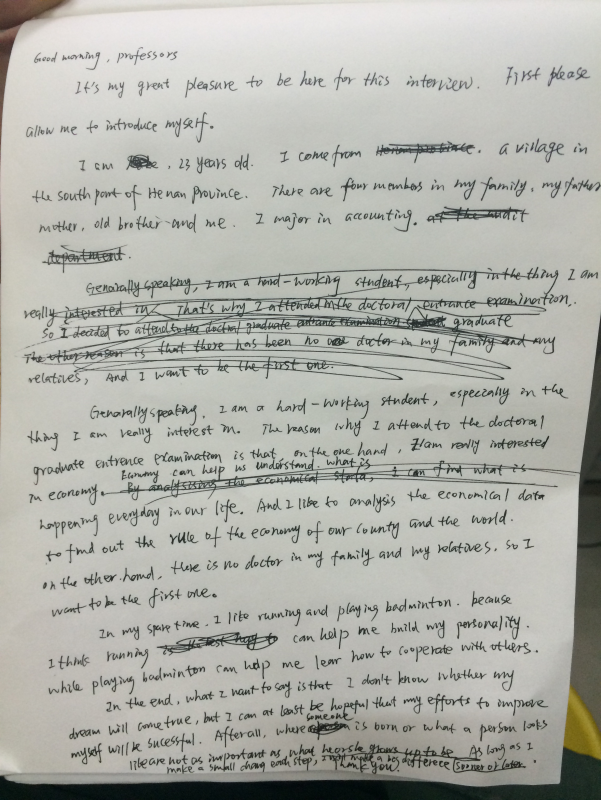 Good morning, professors
It's my great pleasure to be here for this interview. First please
allow me to introduce myself.
I am , 23 years old. I come from Henan province. a village in
the south part of Henan Province. There are four members in my family, my father
mother, old brother and me. I major in accounting. at the audit
department.
Generally speaking, I am a hard-working student, especially in the thing I am
really interested in. That's why I attended in the doctoral entrance examination.
So I decided to attend to the doctoral graduate entrance examination graduate
The other reason is that there has been no doctor in my family and my
relatives, And I want to be the first one.
Generally speaking, I am a hard-working student, especially in the
thing I am really interest in. The reason why I attend to the doctoral
graduate entrence examination is that on the one hand, I am really interested
Economy can help us understand what is
in economy. By analysising the economical stata, I can find what is
happening everyday in our life. And I like to analysis the economical data
to find out the rule of the economy of our county and the world.
on the other hand, there is no doctor in my family and my relatives. so I
want to be the first one.
In my spare time. I like running and playing badminton. because
I think running is the best way to can help me build my personality.
while playing badminton can help me lear how to cooperate with others.
In the end, what I want to say is that I don't know whether my
dream will come true, but I can at least be hopeful that my efforts to improve
someone
myself will be sucessful. After all, where is born or what a person looks
like are not as important as what he or she grows up to be. As long as I
make a small chang each step, I will make a big difference sooner or later.
Thank you.